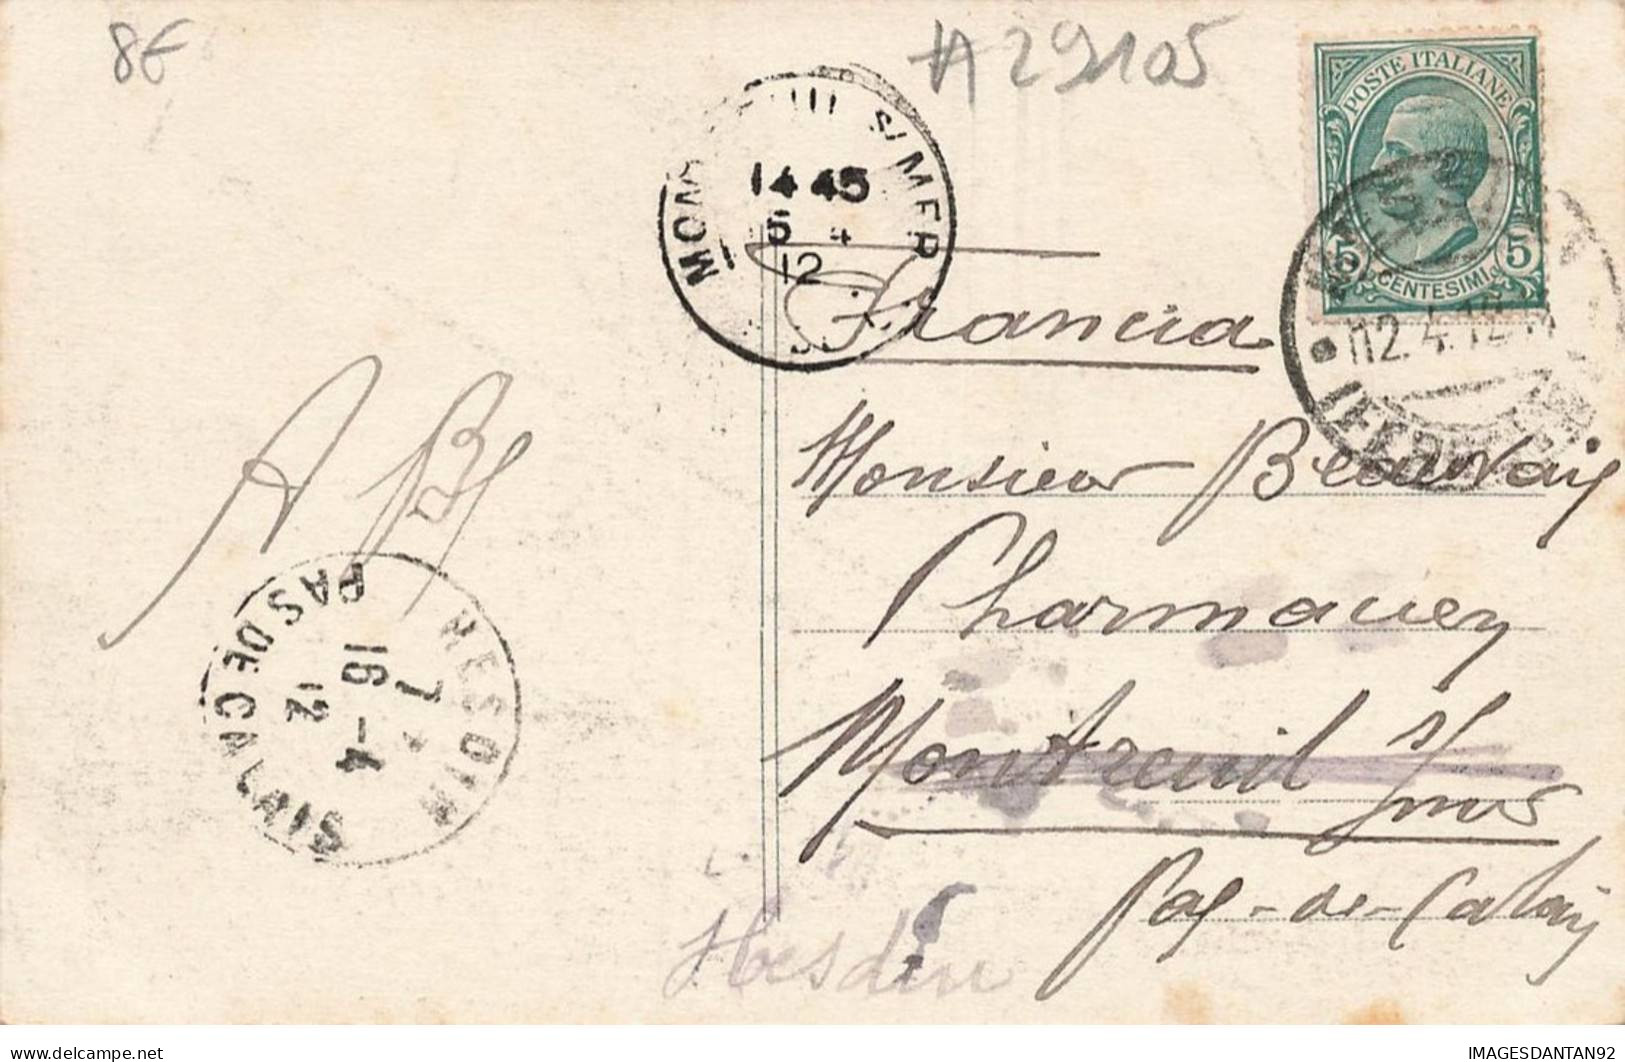 8€
#A29105
POSTE ITALIANE
5 CENTESIMI 5
S/MER
14 45
15 4
12
12.4.12
Francia
Monsieur Beauvais
Pharmacien
Montreuil s/mer
Pas-de-Calais
Hesdin
A B
HESDIN
PAS DE CALAIS
7
16 -4
12
IMAGESDANTAN92